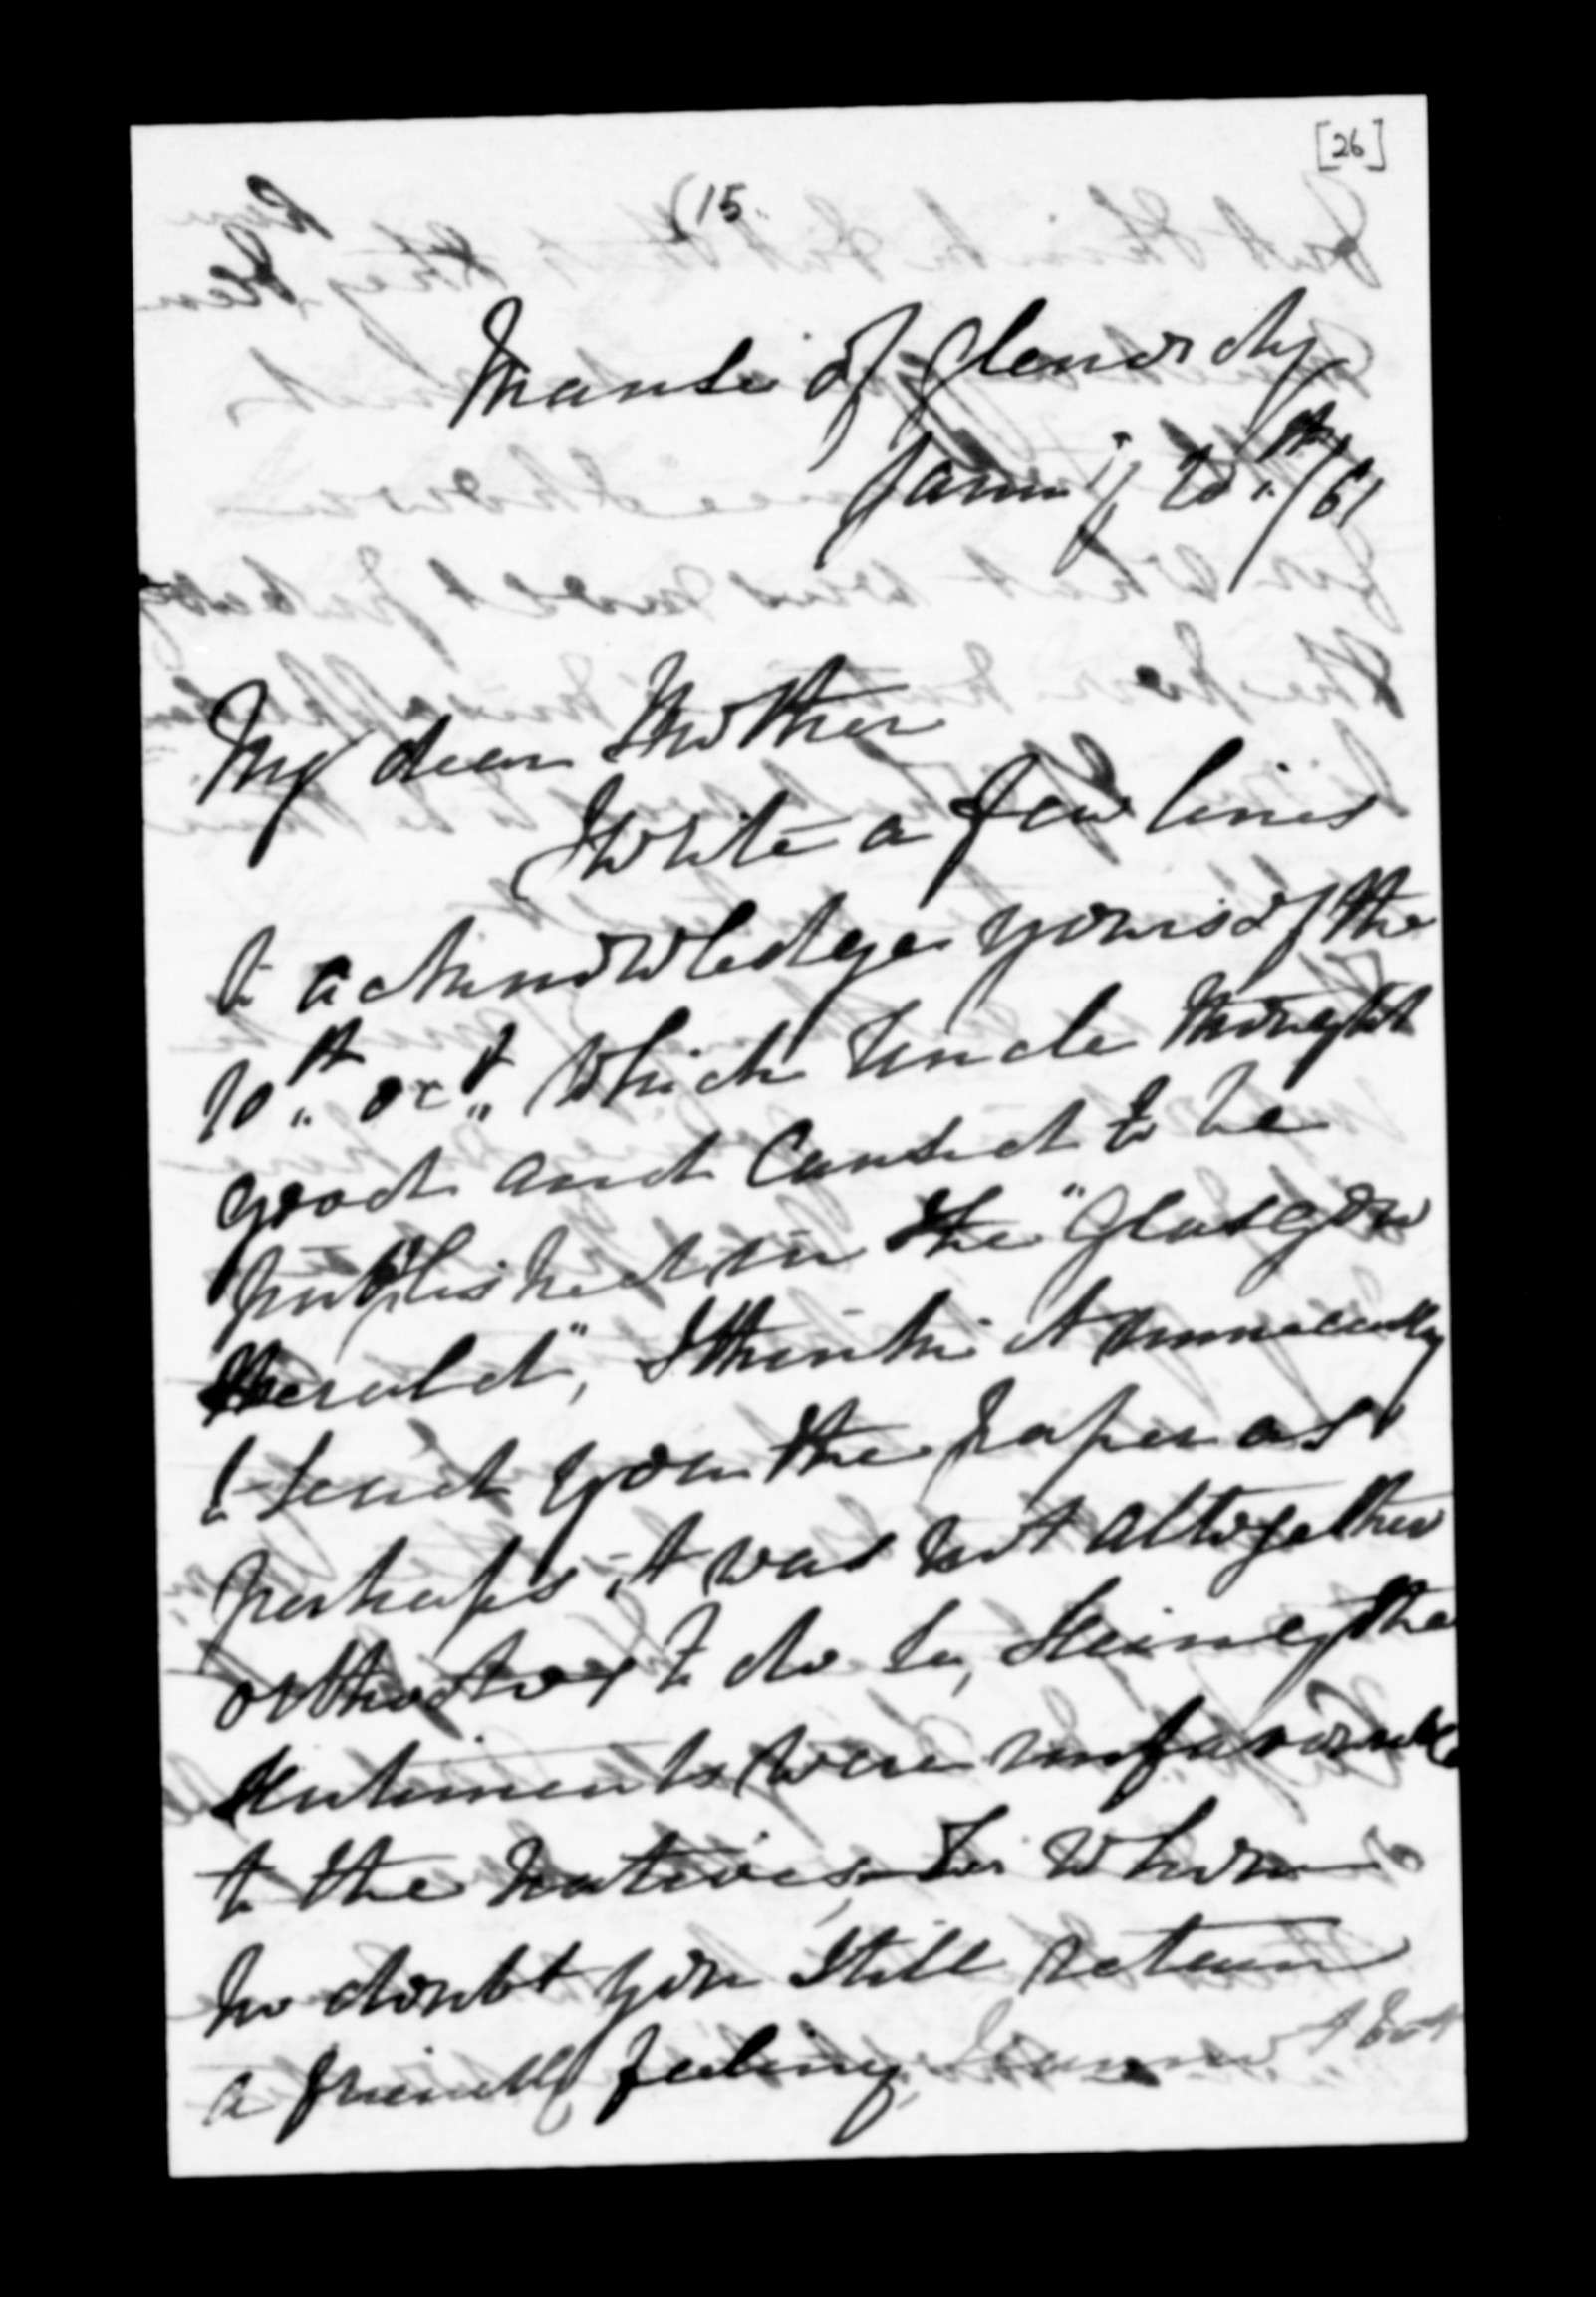 [26]
15.
Manse of Glenorchy
Jany 20th /61
My dear Mother
I write a few lines
to acknowledge yours of the
10th Oct which Uncle thought
good and caused to be
published in the "Glasgow
Herald", I think it unnecessary
to send you the paper as
perhaps it was not altogether
orthodox to do so, seeing the
sentiments were unfavorable
to the natives, for whom
no doubt you still retain
a friendly feeling,